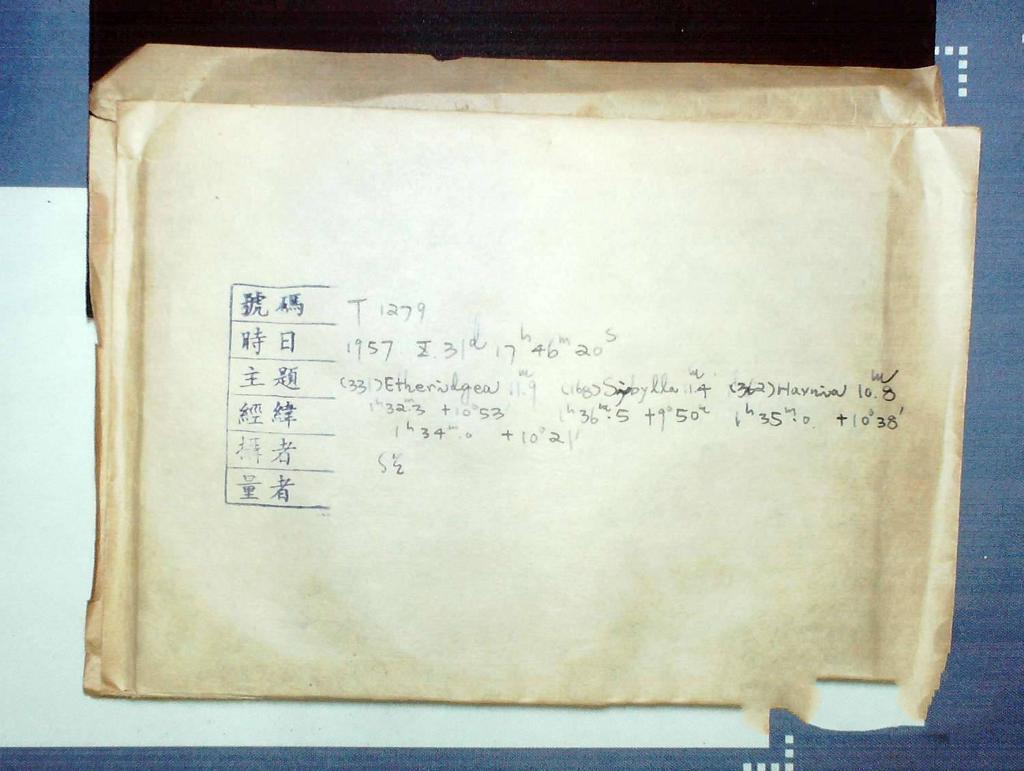 號碼 T 1279
時日 1957 X 31ᵈ 17ʰ 46ᵐ 20ˢ
主題 (331) Etheridgea 11ᵐ.9 (168) Sibylla 11ᵐ.4 (362) Havnia 10ᵐ.8
經緯 1ʰ32ᵐ.3 +10°53′ 1ʰ36ᵐ.5 +9°50′ 1ʰ35ᵐ.0 +10°38′
1ʰ34ᵐ.0 +10°21′
攝者
量者